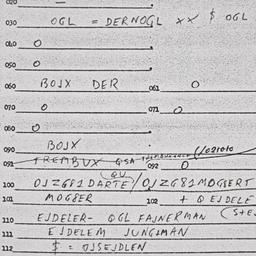 020
030 OGL = DERNOGL xx $ OGL
040 0
050 0
060 BOJX DER 061 0
070 0 071 0
080 0
090 BOJX
091 TREMBUX 092 0
100 OJZG81DARTE/OJZG81MOGSERT
101 MOG8ER 102 + Q EJDELE
110 EJDELER- OGL FAJNERMAN (S+E
111 EJDELEM JUNGMAN
112 $ = OJSEJDLEN